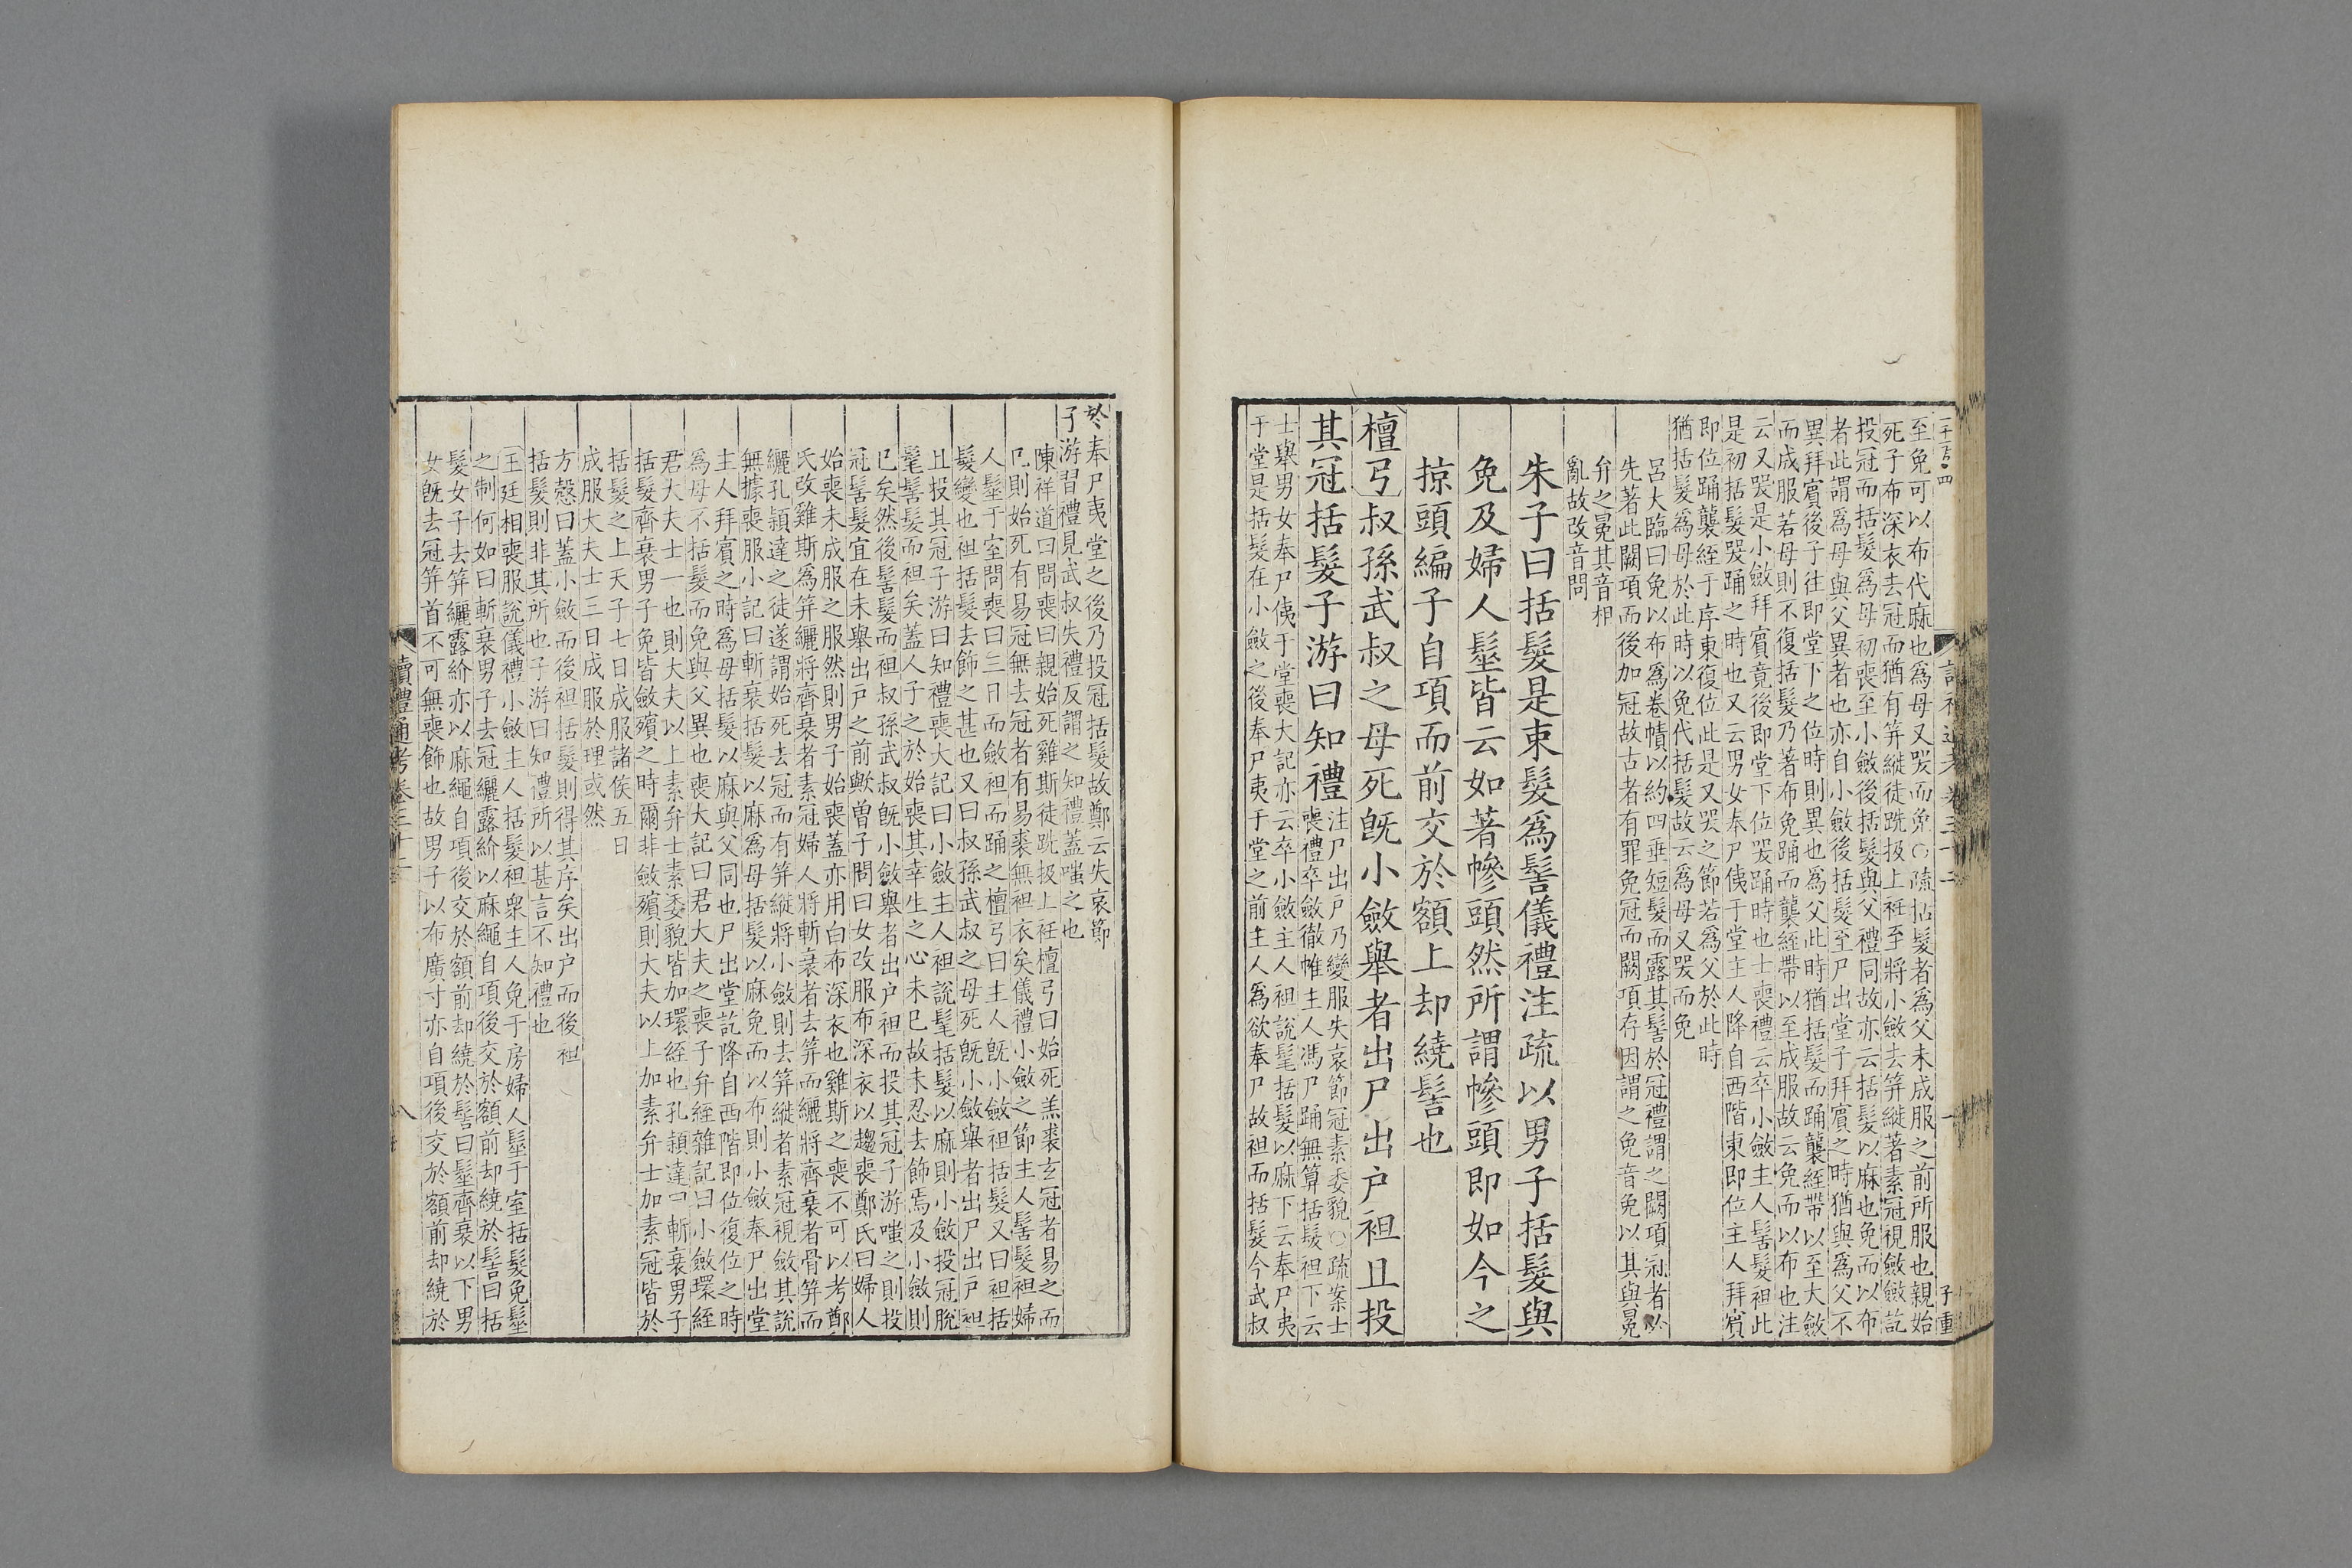 至免可以布代麻也爲母又哭而免○疏括髮者爲父未成服之前所服也親始
死子布深衣去冠而猶有筓縰徒跣扱上衽至將小斂去筓縰著素冠視斂斂訖
投冠而括髮爲母初喪至小斂後括髮與父禮同故亦云括髮以麻也免而以布
者此謂爲母與父異者也亦自小斂後括髮至尸出堂子拜賔之時猶與爲父不
異拜賔後子往即堂下之位時則異也爲父此時猶括髮而踊襲絰帶以至大斂
而成服若母則不復括髮乃著布免踊而襲絰帶以至成服故云免而以布也注
云又哭是小斂拜賔竟後即堂下位哭踊時也士喪禮云卒小斂主人髻髮袒此
是初括髮哭踊之時也又云男女奉尸侇于堂主人降自西階東即位主人拜賔
即位踊襲絰于序東復位此是又哭之節若爲父於此時
猶括髮爲母於此時以免代括髮故云爲母又哭而免
呂大臨曰免以布爲卷幘以約四垂短髮而露其髻於冠禮謂之闕項冠者必
先著此闕項而後加冠故古者有罪免冠而闕項存因謂之免音免以其與冕
弁之冕其音相
亂故改音問
朱子曰括髮是束髮爲髻儀禮注疏以男子括髮與
免及婦人髽皆云如著幓頭然所謂幓頭即如今之
掠頭編子自項而前交於額上却繞髻也
檀弓叔孫武叔之母死旣小斂舉者出尸出户袒且投
其冠括髮子游曰知禮
注尸出户乃變服失哀節冠素委貌○疏案士
喪禮卒斂徹帷主人馮尸踊無算括髮袒下云
士舉男女奉尸侇于堂喪大記亦云卒小斂主人袒說髦括髮以麻下云奉尸夷
于堂是括髮在小斂之後奉尸夷于堂之前主人爲欲奉尸故袒而括髮今武叔
於奉尸夷堂之後乃投冠括髮故鄭云失哀節
子游習禮見武叔失禮反謂之知禮蓋嗤之也
陳祥道曰問喪曰親始死雞斯徒跣扱上衽檀弓曰始死羔裘玄冠者易之而
已則始死有易冠無去冠者有易裘無袒衣矣儀禮小斂之節主人髻髮袒婦
人髽于室問喪曰三日而斂袒而踊之檀弓曰主人旣小斂袒括髮又曰袒括
髮變也袒括髮去飾之甚也又曰叔孫武叔之母死旣小斂舉者出尸出户袒
且投其冠子游曰知禮喪大記曰小斂主人袒說髦括髮以麻則小斂投冠脫
髦髻髮而袒矣蓋人子之於始喪其幸生之心未已故未忍去飾焉及小斂則
已矣然後髻髮而袒叔孫武叔旣小斂舉者出户袒而投其冠子游嗤之則投
冠髻髮宜在未舉出户之前歟曾子問曰女改服布深衣以趨喪鄭氏曰婦人
始喪未成服之服然則男子始喪蓋亦用白布深衣也雞斯之喪不可以考鄭
氏改雞斯爲筓纚將齊衰者素冠婦人將斬衰者去筓而纚將齊衰者骨筓而
纚孔頴達之徒遂謂始死去冠而有筓縰將小斂則去筓縰者素冠視斂其說
無據喪服小記曰斬衰括髮以麻爲母括髮以麻免而以布則小斂奉尸出堂
主人拜賔之時爲母括髮以麻與父同也尸出堂訖降自西階即位復位之時
爲母不括髮而免與父異也喪大記曰君大夫之喪子弁絰雜記曰小斂環絰
君大夫士一也則大夫以上素弁士素委貌皆加環絰也孔頴達曰斬衰男子
括髮齊衰男子免皆斂殯之時爾非斂殯則大夫以上加素弁士加素冠皆於
括髮之上天子七日成服諸侯五日
成服大夫士三日成服於理或然
方慤曰蓋小斂而後袒括髮則得其序矣出户而後袒
括髮則非其所也子游曰知禮所以甚言不知禮也
王廷相喪服說儀禮小斂主人括髮袒衆主人免于房婦人髽于室括髮免髽
之制何如曰斬衰男子去冠纚露紒以麻繩自項後交於額前却繞於髻曰括
髮女子去筓纚露紒亦以麻繩自項後交於額前却繞於髻曰髽齊衰以下男
女旣去冠筓首不可無喪飾也故男子以布廣寸亦自項後交於額前却繞於
讀禮通考卷三十二
八